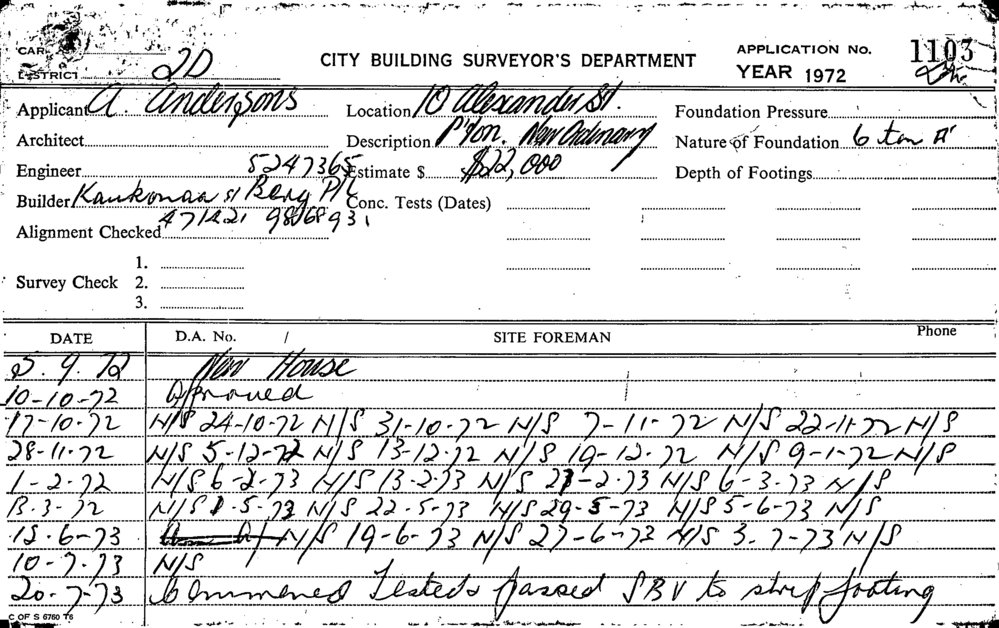 CAR.
DISTRICT 2D
CITY BUILDING SURVEYOR'S DEPARTMENT
APPLICATION No. 1103
YEAR 1972
Applicant A. Andersons Location 10 Alexander St. Foundation Pressure
Architect Description P'ton. New Ordinary Nature of Foundation 6 ton
Engineer 5247365 Estimate $ $22,000 Depth of Footings
Builder Berg P/L Conc. Tests (Dates)
Alignment Checked 471421
1.
Survey Check 2.
3.
DATE D.A. No. / SITE FOREMAN Phone
5.9.72 New House
10-10-72 Approved
17-10-72 N/S 24-10-72 N/S 31-10-72 N/S 7-11-72 N/S 22-11-72 N/S
28-11-72 N/S 5-12-72 N/S 13-12-72 N/S 19-12-72 N/S 9-1-72 N/S
1-2-72 N/S 6-2-73 N/S 13-2-73 N/S 27-2-73 N/S 6-3-73 N/S
13-3-72 N/S 1-5-73 N/S 22-5-73 N/S 29-5-73 N/S 5-6-73 N/S
12-6-73 N/S 19-6-73 N/S 27-6-73 N/S 3-7-73 N/S
10-7-73 N/S
20-7-73 Commenced Tested & passed SBV to strip footing
C OF S 6760 T6